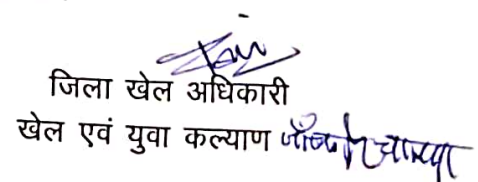 जिला खेल अधिकारी
खेल एवं युवा कल्याण